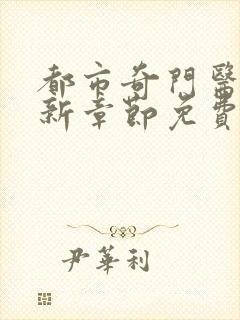 都市奇門醫
新章節免費
尹華利